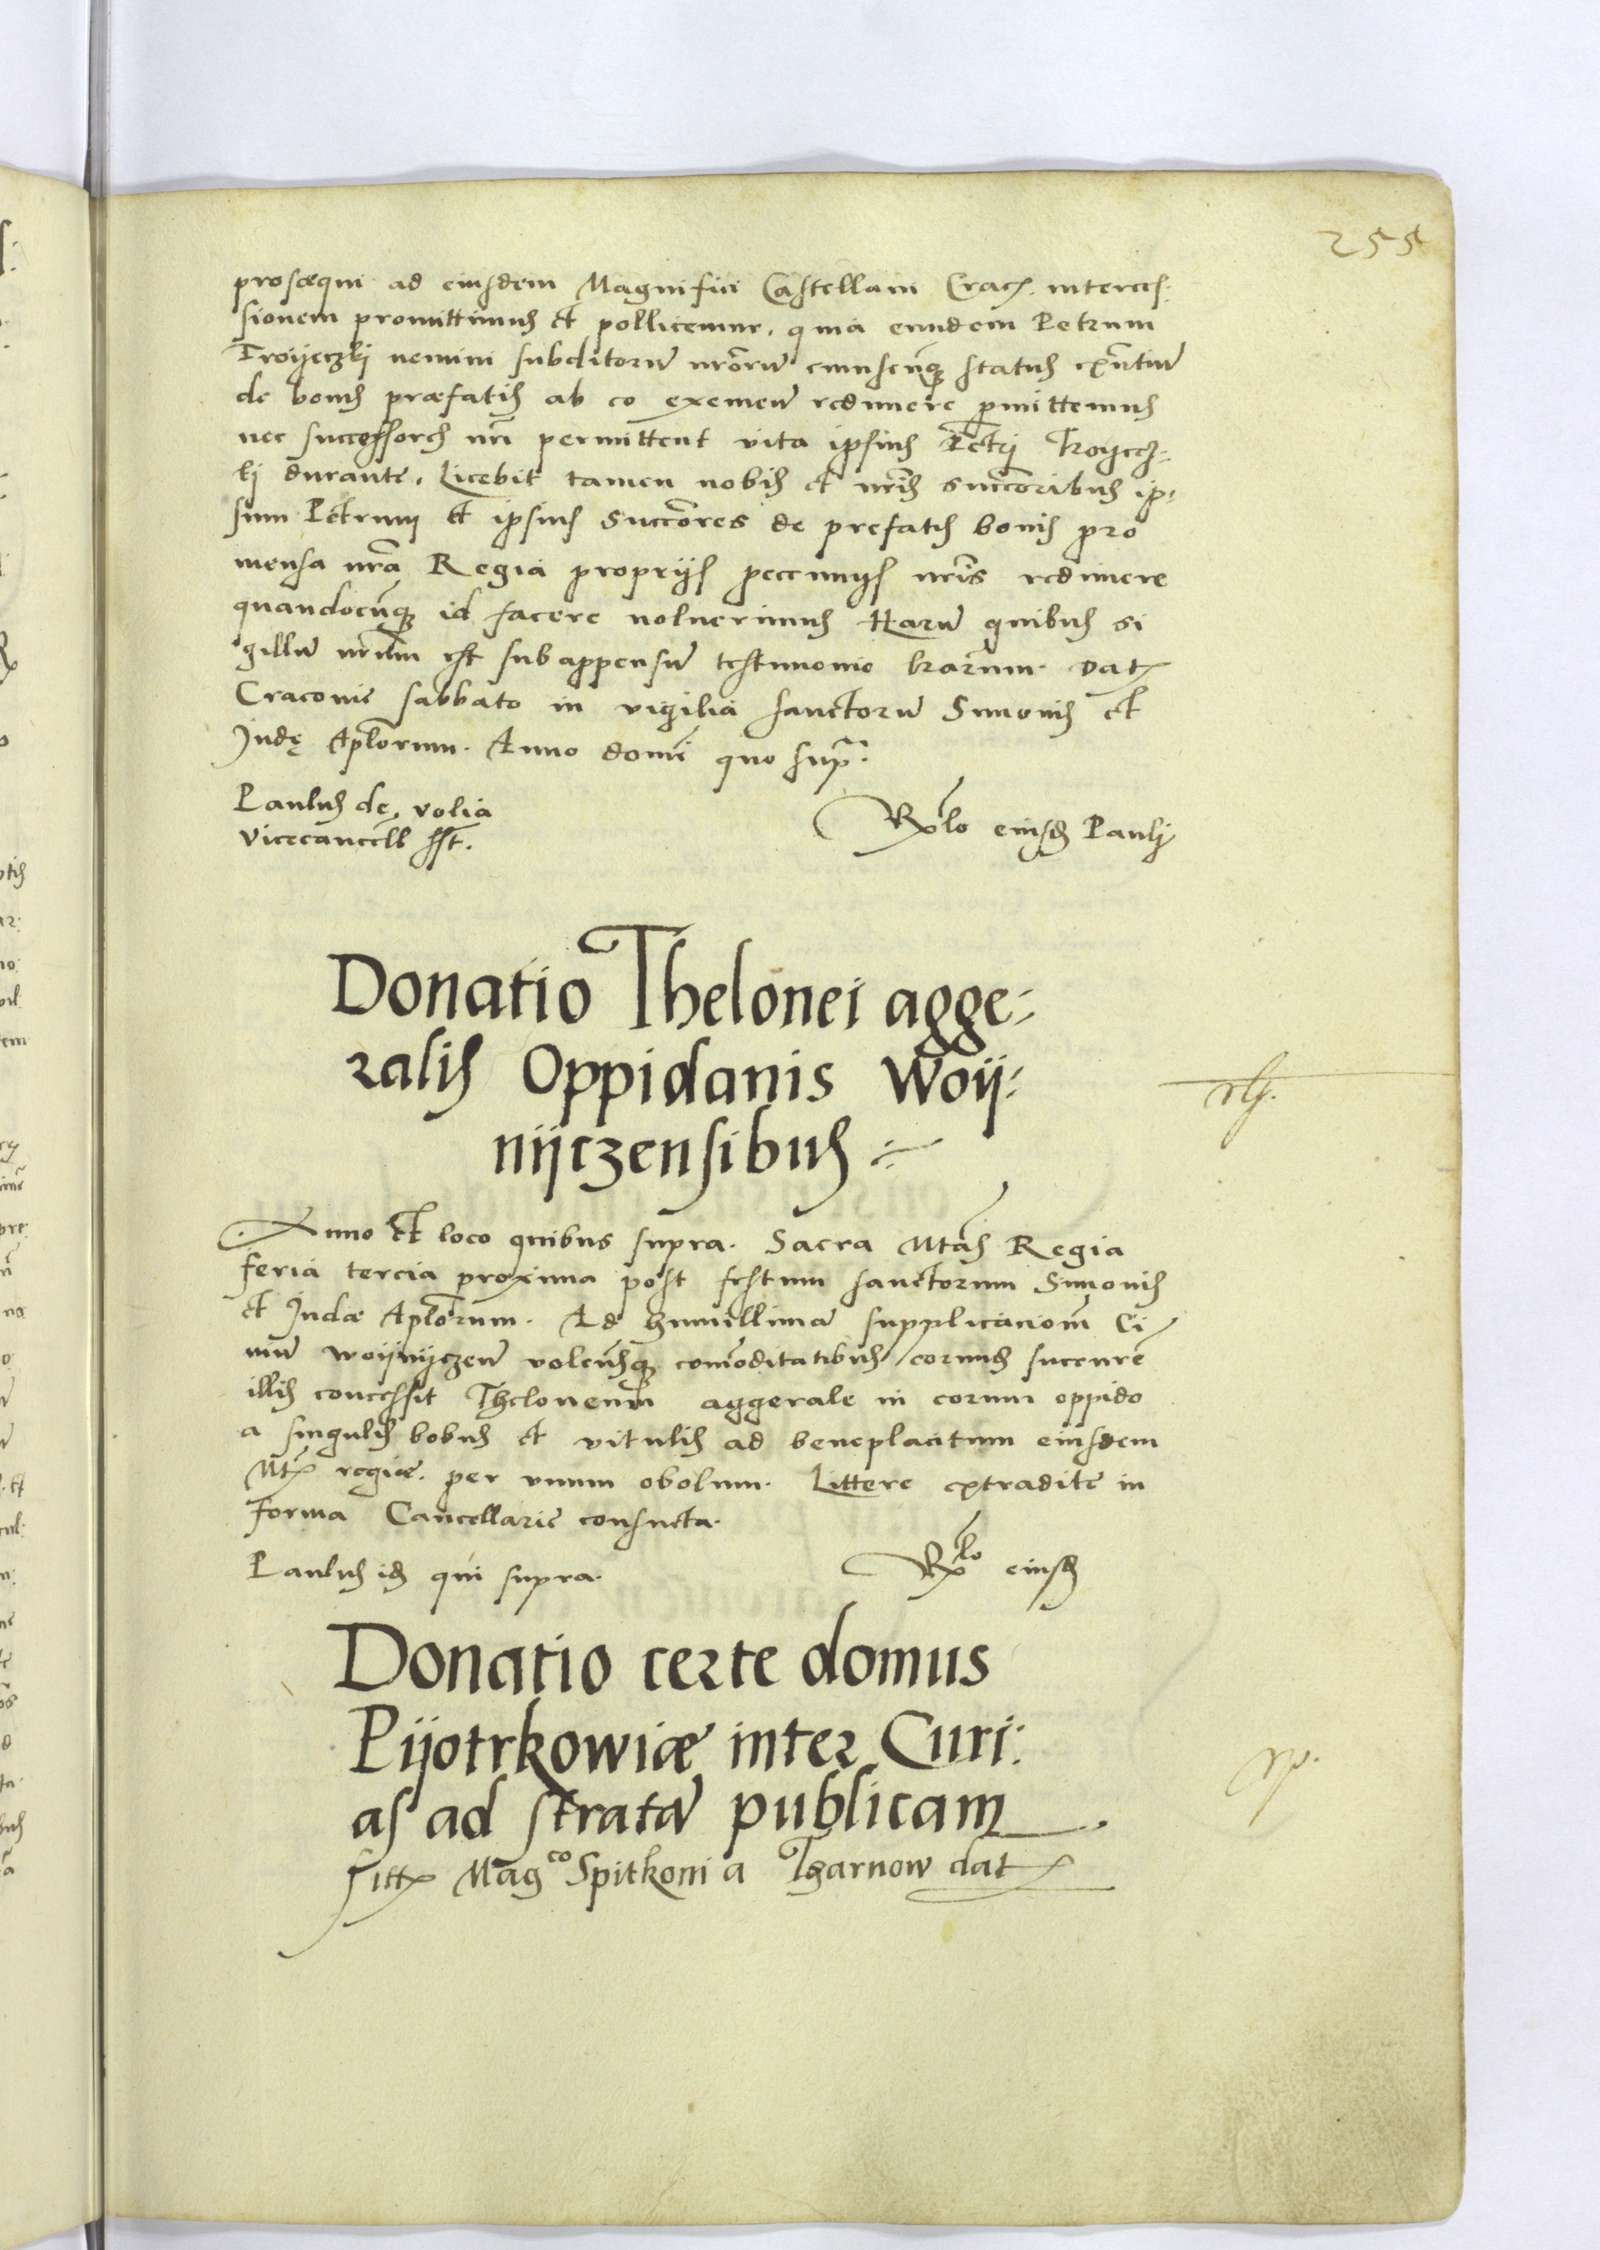 255
prosæqui ad eiusdem Magnifici Castellani Crac. interces:
sionem promittimus et pollicemur, quia eundem Petrum
Troijeczkij nemini subditorū nrōrū cuiuscūq status exñtiū
de bonis præfatis ab eo exemere redimere pmittemus
nec successores nrī permittent vita ipsius Petrj Troijecz-
kj durante. Licebit tamen nobis et nrīs succōribus ip-
sum Petrum et ipsius succōres de prefatis bonis pro
mensa nrā Regia proprijs pecunijs nrīs redimere
quandocūq id facere voluerimus Harū quibus si
gillū nrūm est subappensū testimonio lrārum. Dat
Craconie sabbato in vigilia sanctorū Simonis et
Judę Aplōrum. Anno domī quo supra.
Paulus de volia
Vicecancell sst.
Rlo eiusd Paulj
Donatio Thelonei agge-
ralis Oppidanis Woij-
nijczensibus
Anno et loco quibus supra. Sacra Mtās Regia
feria tercia proxima post festum sanctorum Simonis
et Judæ Aplōrum. Ad humillimā supplicacionē Ci
uiū woijnijczeñ volēnsq comoditatibus eorumd succurrē
illis concessit Theloneum aggerale in eorum oppido
a singulis bobus et vitulis ad beneplacitum eiusdem
Mtis regiæ. per vnum obolum. Littere extradite in
forma Cancellarie consueta.
Paulus id qui supra.
Rlo eiusd
Donatio certe domus
Pijotrkowiæ inter Curi:
as ad stratā publicam
sitt Magco Spitkoni a Tharnow dat